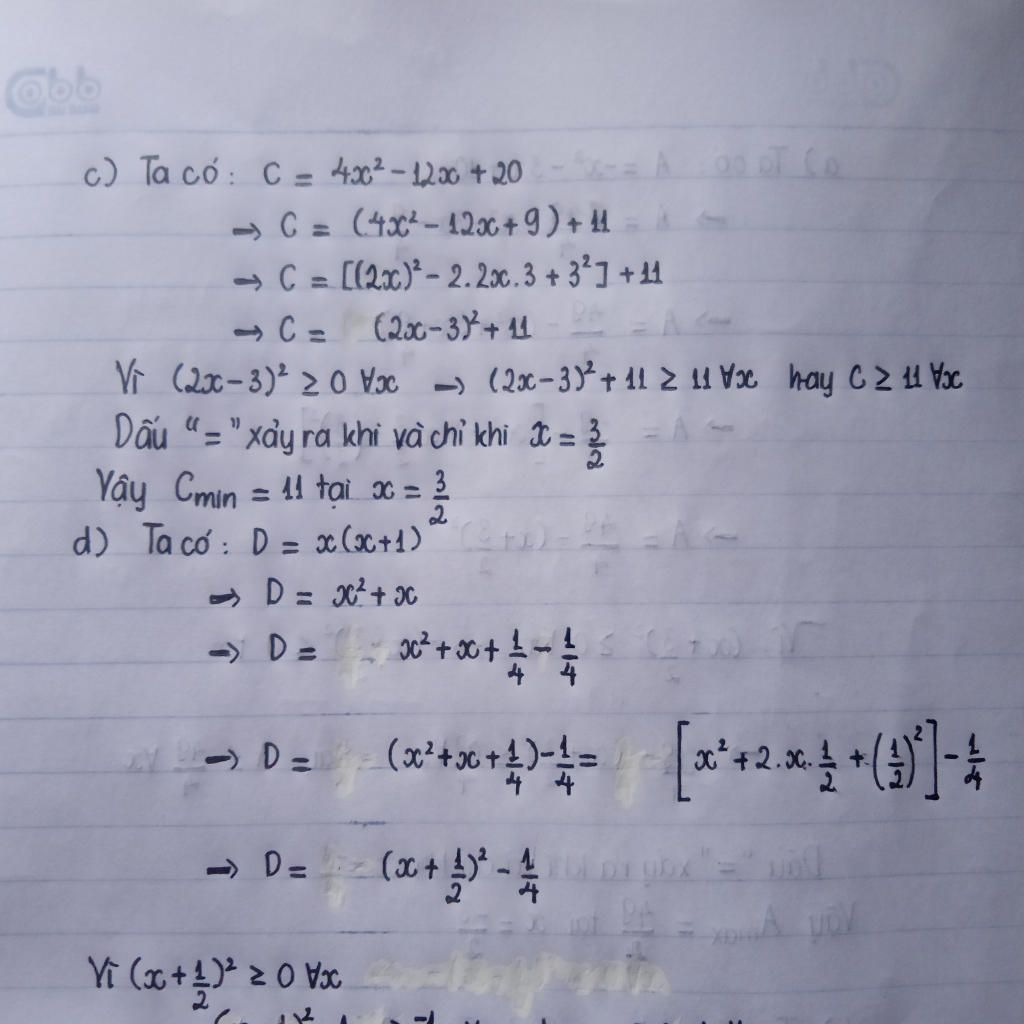 c) Ta có: C = 4x² - 12x + 20
→ C = (4x² - 12x + 9) + 11
→ C = [(2x)² - 2.2x.3 + 3²] + 11
→ C = (2x-3)² + 11
Vì (2x-3)² ≥ 0 ∀x → (2x-3)² + 11 ≥ 11 ∀x hay C ≥ 11 ∀x
Dấu "=" xảy ra khi và chỉ khi x = 3/2
Vậy Cmin = 11 tại x = 3/2
d) Ta có: D = x(x+1)
→ D = x² + x
→ D = x² + x + 1/4 - 1/4
→ D = (x² + x + 1/4) - 1/4 = [x² + 2.x.1/2 + (1/2)²] - 1/4
→ D = (x + 1/2)² - 1/4
Vì (x + 1/2)² ≥ 0 ∀x